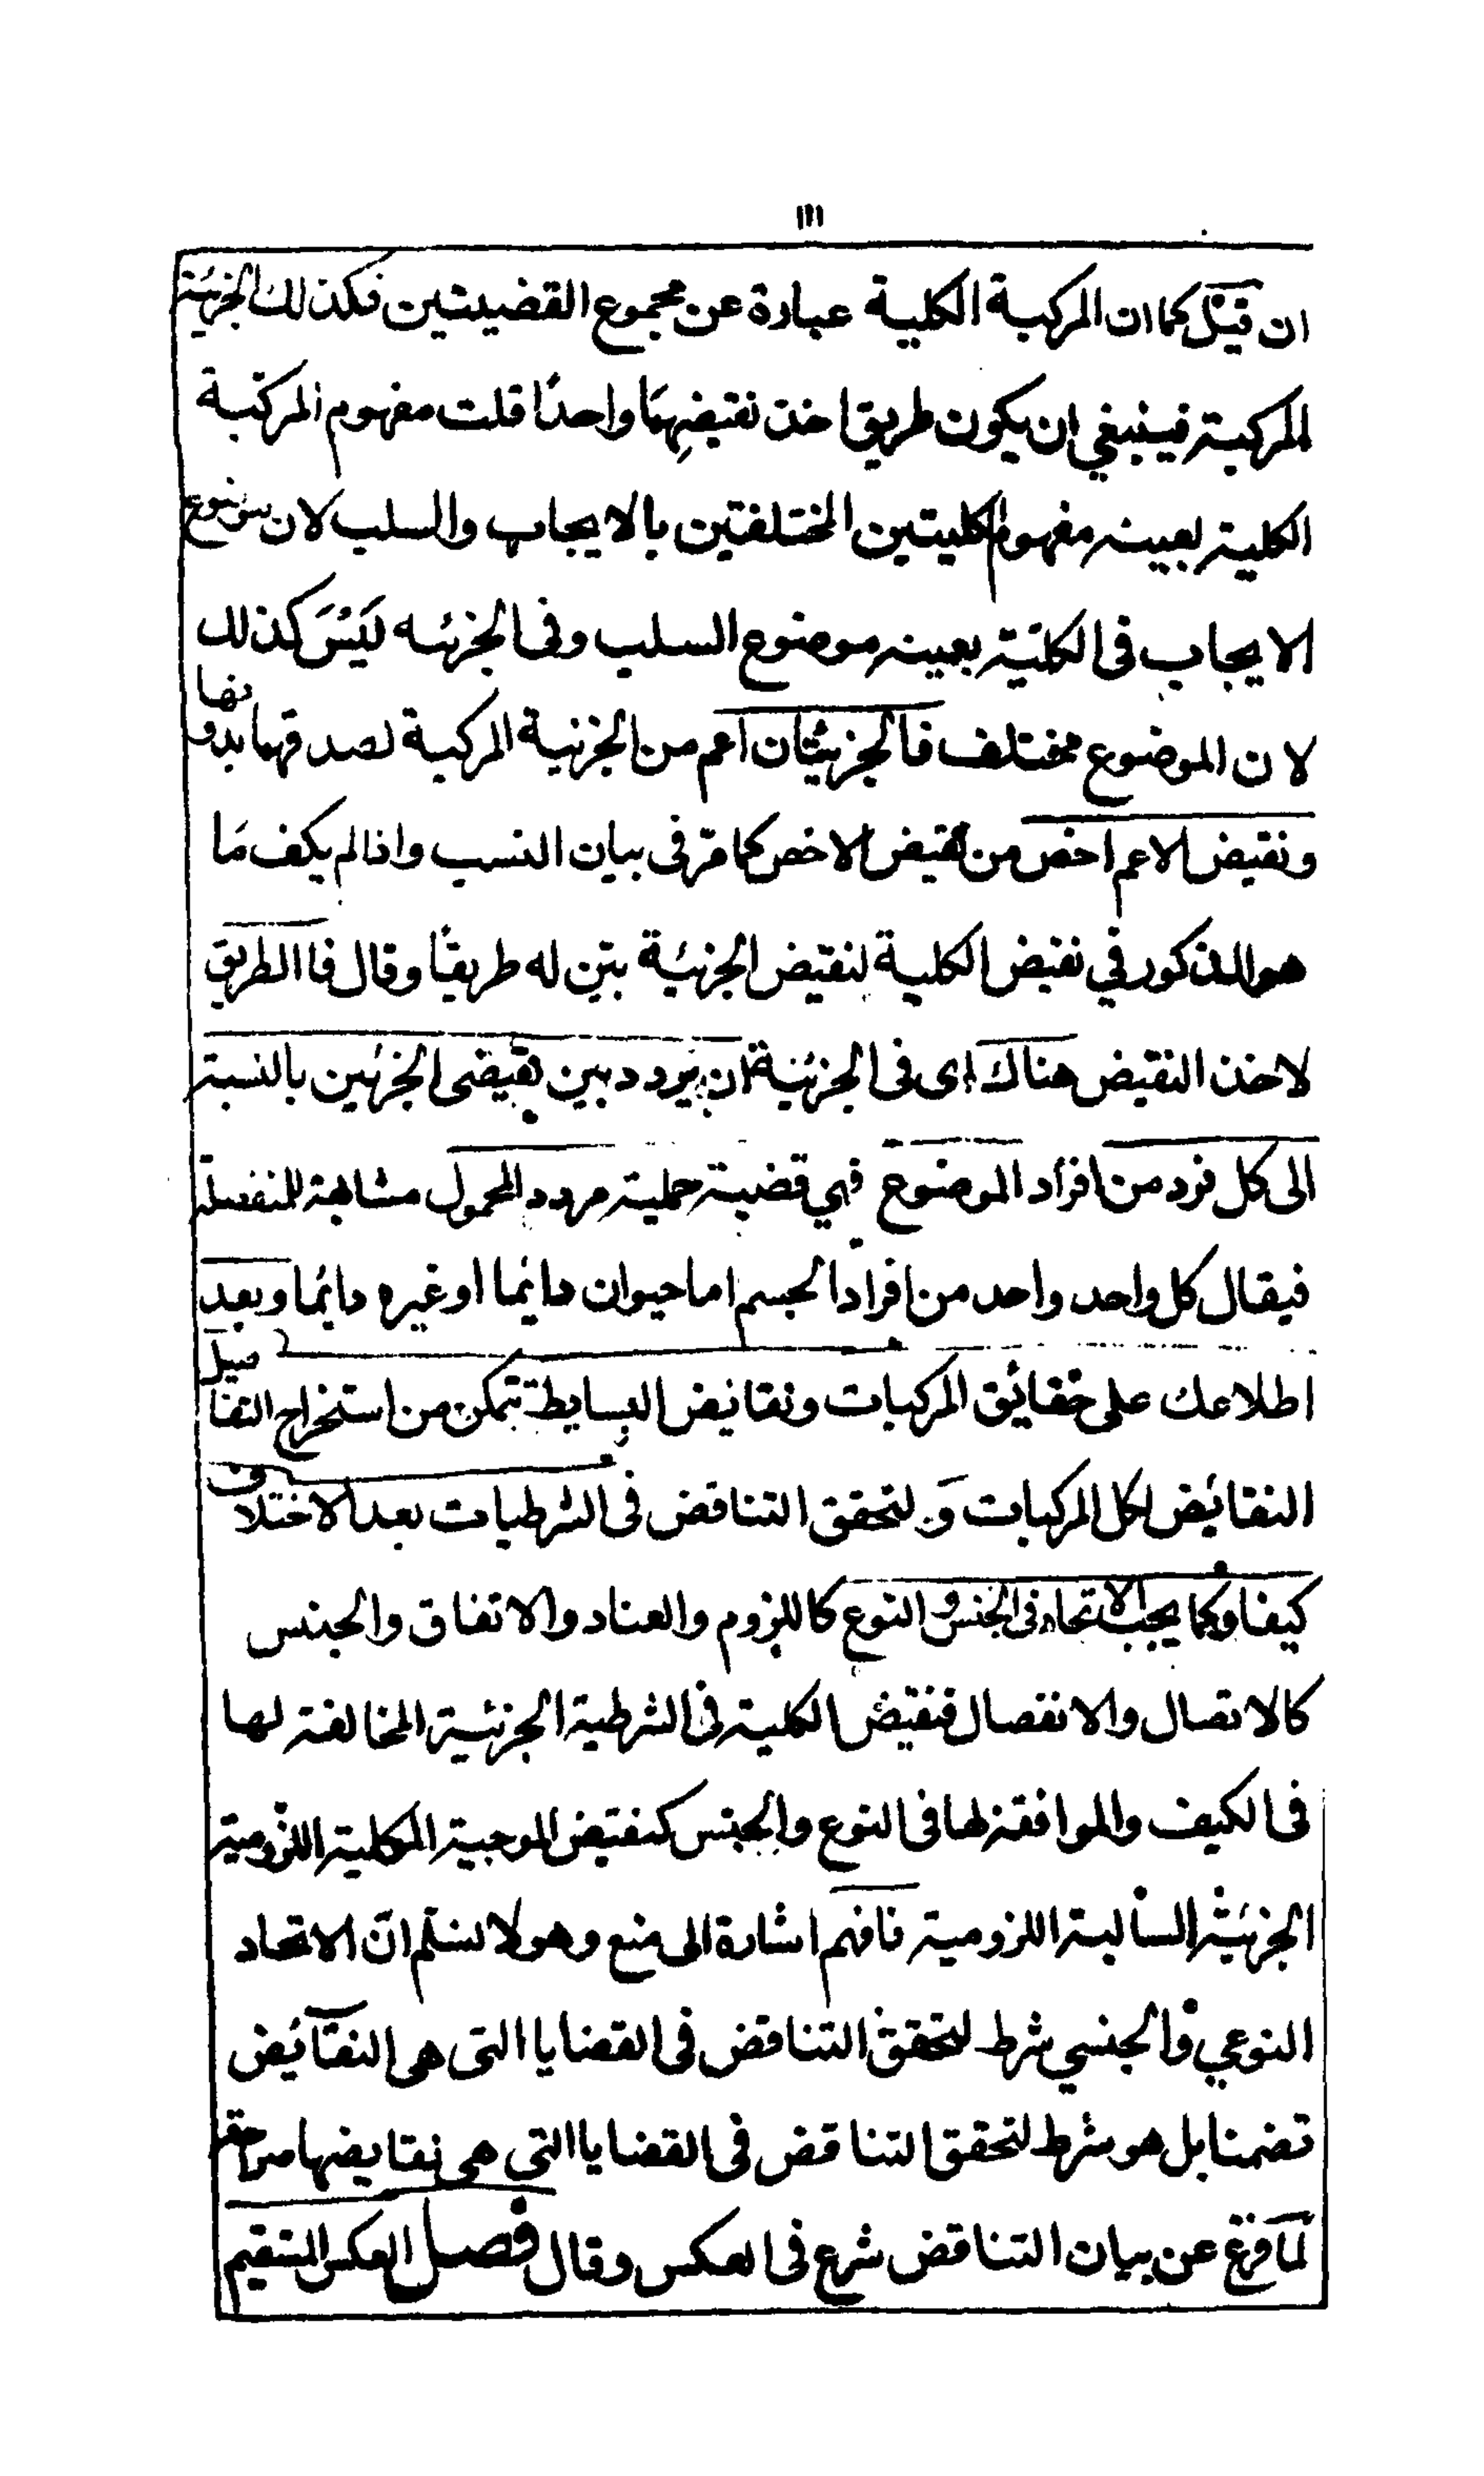 ١١١
ان قيل كما ان المركبة الكلية عبارة عن مجموع القضيتين فكذلك الجزئية
المركبة فينبغي ان يكون طريق اخذ نقيضهما واحدًا قلت مفهوم المركبة
الكلية بعينه مفهوم الكليتين المختلفتين بالايجاب والسلب لان موضوع
الايجاب فى الكلية بعينه موضوع السلب وفى الجزئيه ليس كذلك
لان الموضوع مختلف فالجزئيتان اعم من الجزئية المركبة لصدقهما بدونها
ونقيض الاعم اخص من نقيض الاخص كما مرّ فى بيان النسب واذا لم يكف مَا
هو المذكور في نقيض الكلية لنقيض الجزئية بيّن له طريقًا وقال فاالطريق
لاخذ النقيض هناك اى فى الجزئية ان يردد بين نقيضى الجزئين بالنسبة
الى كل فرد من افراد الموضوع فهي قضية حملية مردد المحمول مشابهة للمنفصلة
فيقال كل واحد واحد من افراد الجسم اما حيوان دائما او غيره دائما وبعد
اطلاعك على حقائق المركبات ونقائض البسايط تتمكن من استخراج التفاصيل
النقائض لكل المركبات وَ لتحقق التناقض فى الشرطيات بعد الاختلاف
كيفا وكما يجب الاتحاد فى الجنس و النوع كاللزوم والعناد والاتفاق والجنس
كالاتصال والانفصال فنقيض الكلية فى الشرطية الجزئية المخالفة لها
فى الكيف والموافقة لها فى النوع والجنس كنقيض الموجبة الكلية اللزومية
الجزئية السالبة اللزومية فافهم اشارة الى منع وهو لا نسلّم انّ الاتحاد
النوعي والجنسي شرط لتحقق التناقض فى القضايا التى هى النقائض
تضمنا بل هو شرط لتحقق التناقض فى القضايا التي هى نقايضها صراحة
لمّا فرغ عن بيان التناقض شرع فى العكس وقال فصل العكس المستقيم